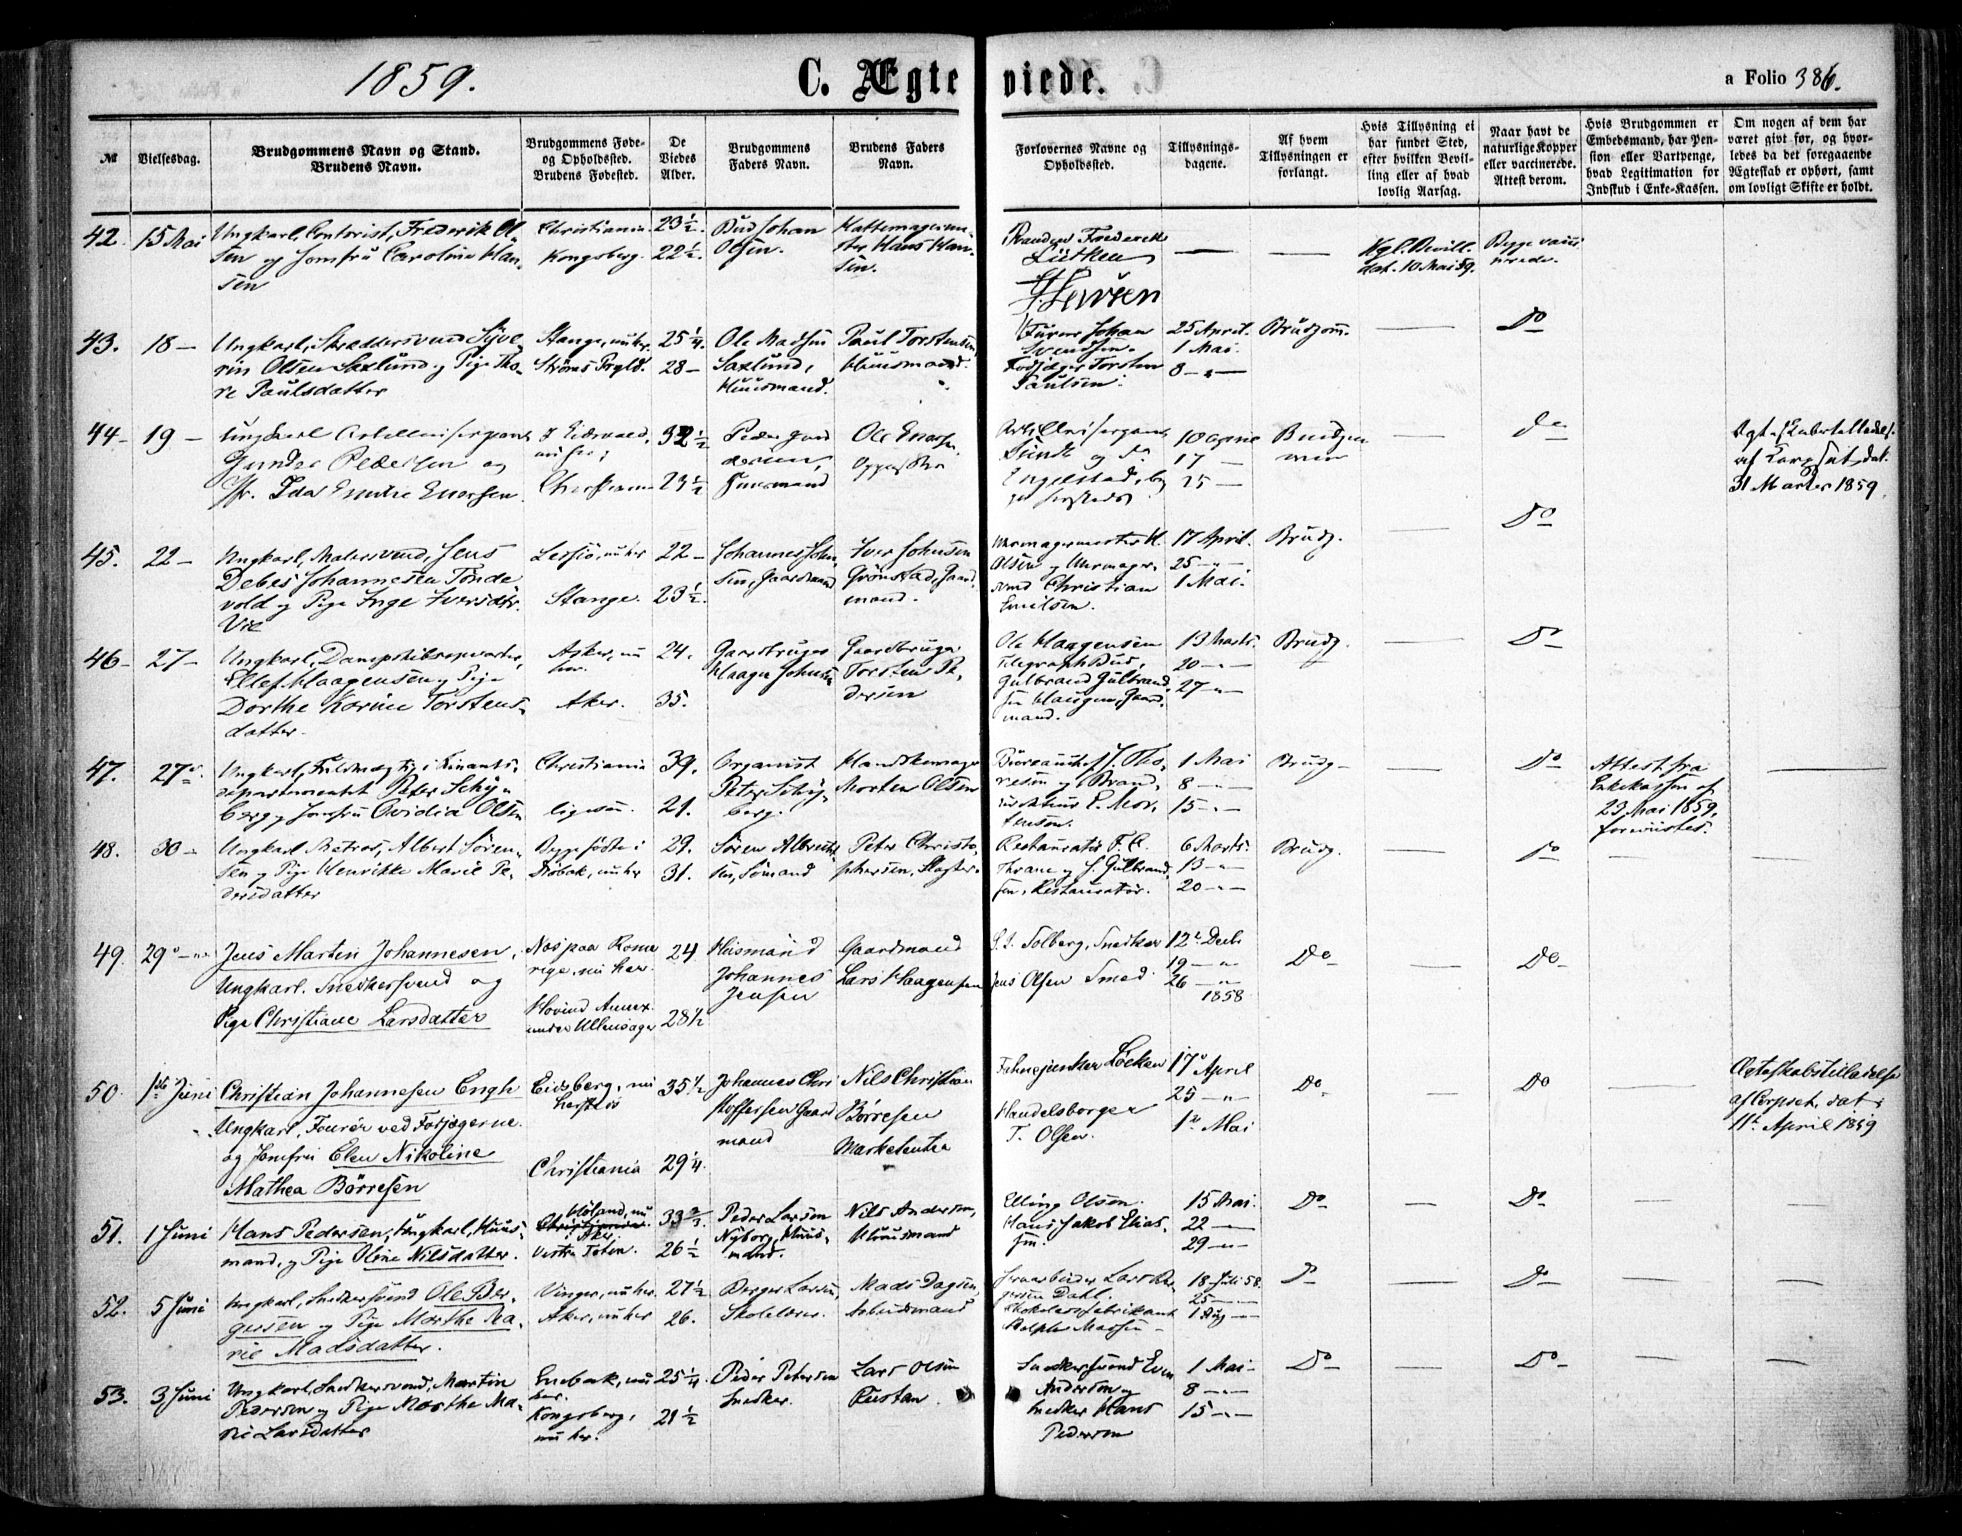 1859.
C. Ægteviede.
a Folio 386.
№
Vielsesdag.
Brudgommens Navn og Stand.
Brudens Navn.
Brudgommens Føde-
og Opholdssted.
Brudens Fødested.
De
Viedes
Alder.
Brudgommens
Faders Navn.
Brudens Faders
Navn.
Forlovernes Navne og
Opholdssted.
Tillysnings-
dagene.
Af hvem
Tillysningen er
forlangt.
Hvis Tillysning ei
har fundet Sted,
efter hvilken Bevil-
ling eller af hvad
lovlig Aarsag.
Naar havt de
naturlige Kopper
eller vaccinerede.
Attest derom.
Hvis Brudgommen er
Embedsmand, har Pen-
sion eller Vartpenge,
hvad Legitimation for
Indskud i Enke-Kassen.
Om nogen af dem har
været givt før, og hvor-
ledes da det foregaaende
Ægteskab er ophørt, samt
om lovligt Skifte er holdt.
42. 15 Mai
Ungkarl, Contorist, Frederik Ol
sen og Jomfru Caroline Han
sen
Christiania
Kongsberg.
23 ½.
22 ½.
Bud Johan
Olsen.
Hattemagerme-
ster Hans Han-
sen.
Frederik
Lütken
Kgl. Bevill.
dat. 10 Mai 59.
Begge vacci
nerede.
43. 18 —
Ungkarl, Skræddersvend Syve-
rin Olsen Saxlund og Pige Tho-
re Paulsdatter
Stange, nu her.
Strøms Prgld.
25 ¼.
28 —
Ole Madsen
Saxlund,
Huusmand.
Paul Torstensen,
Huusmand.
Johan
Svendsen.
Torsten
Paulsen.
25 April.
1 Mai.
8 — " —
Brudgom.
Do
44 — 19 —
Ungkarl
Gunder Pedersen og
Jfr. Ida Emilie Enersen.
Eidsvold,
nu her,
Christiania
32 ½
23 ½
Peder
Huusmand
Ole Enersen
og
Engelstad, beg
10 April
17 —
25 —
Brudgom
men
Do
af Korpset, dat.
31 Marts 1859.
45. 22 —
Ungkarl, Malersvend, Jens
Debes Johannesen Tonde
vold og Pige Inge Iversdtr.
Vic
Lessjø, nu her
Stange.
22 —
23 ½.
Johannes John-
sen, Gaardmand
Iver Johnsen
Grønstad, Gaard-
mand.
Uhrmagermester H.
Olsen og Uhrmager-
svend Christian
Emilsen.
17 April.
25 — " —.
1 Mai.
Brudg.
Do
46 — 27 —
Ungkarl,
Ellef Haagensen og Pige
Dorthe Karine Torstens-
datter.
Asker, nu
her.
Aker.
24.
35.
Gaardbruger
Haagen Johnsen
Gaardbruger
Torsten Pe-
dersen
Ole Haagensen
Telegraph Bud,
Gulbrand Gulbrand-
sen Haugen, Gaard-
mand.
13 Marts.
20 — " —
27 — " —
Brudg.
Do
47. 27 —.
Ungkarl, Fuldmægtig i Finants-
departementet Peter Schy-
berg og Jomfru Ovidia Olsen
Christiania
ligesaa.
39.
21.
Organist
Peter Schy-
berg.
Handskemager
Morten Olsen
Bureauchef J. Tho-
resen og Brand-
P. Mor-
tensen.
1 Mai
8 — " —
15 — " —
Brudg —
Do
Attest fra
Enkekassen af
23 Mai 1859,
forevistes.
48. 30 —
Ungkarl Matros, Albert Søren-
sen og Pige Henrikke Marie Pe-
dersdatter
Begge fødte i
Drøbak, nu her
29.
31.
Søren Albrecht-
sen, Sømand
Peter Christo-
phersen, Slagter.
Restauratør F. C.
Thrane og J. Gulbrand-
sen, Restauratør.
6 Marts.
13 — " —
20 — " —
Brudg.
Do
49. 29 — " —
Jens Martin Johannesen,
Ungkarl. Snedkersvend og
Pige Christiane Larsdatter
Næs paa Rome
rige, nu her.
Hovind Annex
under Ullensager
24
28 ½
Huusmand
Johannes
Jensen
Gaardmand
Lars Haagensen
Solberg, Snedker
Jens Olsen Smed.
12te Decbr.
19 — " —
26 — " —
1858.
Do
Do
50. 1ste Juni
Christian Johannesen Engh
Ungkarl, Fourer ved Forjægerne.
og Jomfru Elen Nikoline
Mathea Børresen
Eidsberg, nu
Christiania
35 ½
29 ¼.
Johannes Chri
stoffersen Gaard
mand
Nils Christian
Børresen
Marketenter
Fahnejunker Løcken
Handelsborger
T. Olsen.
17 April
25 — " —
1te Mai
Do
Do
Ægteskabstilladelse
af Corpset, dat.
11te April 1859
51. 1 Juni
Hans Pedersen, Ungkarl, Huus-
mand, og Pige Oline Nilsdatter.
Høland, nu
i Aker.
Vestre Toten.
33 ⅔.
26 ½
Peder Larsen
Nyborg, Huus-
mand.
Nils Andersen,
Huusmand
Elling Olsen.
Hans Jakob Elias-
sen.
15 Mai.
22 —
29 — " —
Do
Do
52. 5 Juni
Ungkarl, Snedkersvend Ole Ber-
gersen og Pige Marthe Ma-
rie Madsdatter.
Vinger, nu her.
Aker, nu her
27 ½
26.
Berger Larsen,
Skolelærer.
Mads Dagsen,
Arbeidsmand
Lars Ber-
gersen Dahl.
Chokoladefabrikant
18 Juli 58.
25 —
1 Aug —
Do
Do
53. 3 Juni
Ungkarl, Snedkersvend, Martin
Pedersen og Pige Marthe Ma-
rie Larsdatter
Enebak, nu
her.
Kongsberg,
nu her.
25 ¼
21 ½
Peder Petersen
Snedker.
Lars Olsen
Snedkersvend Even
Andersen og
Snedker Hans
Pedersen
1 Mai —
8 — " —
15 — " —
Do
Do